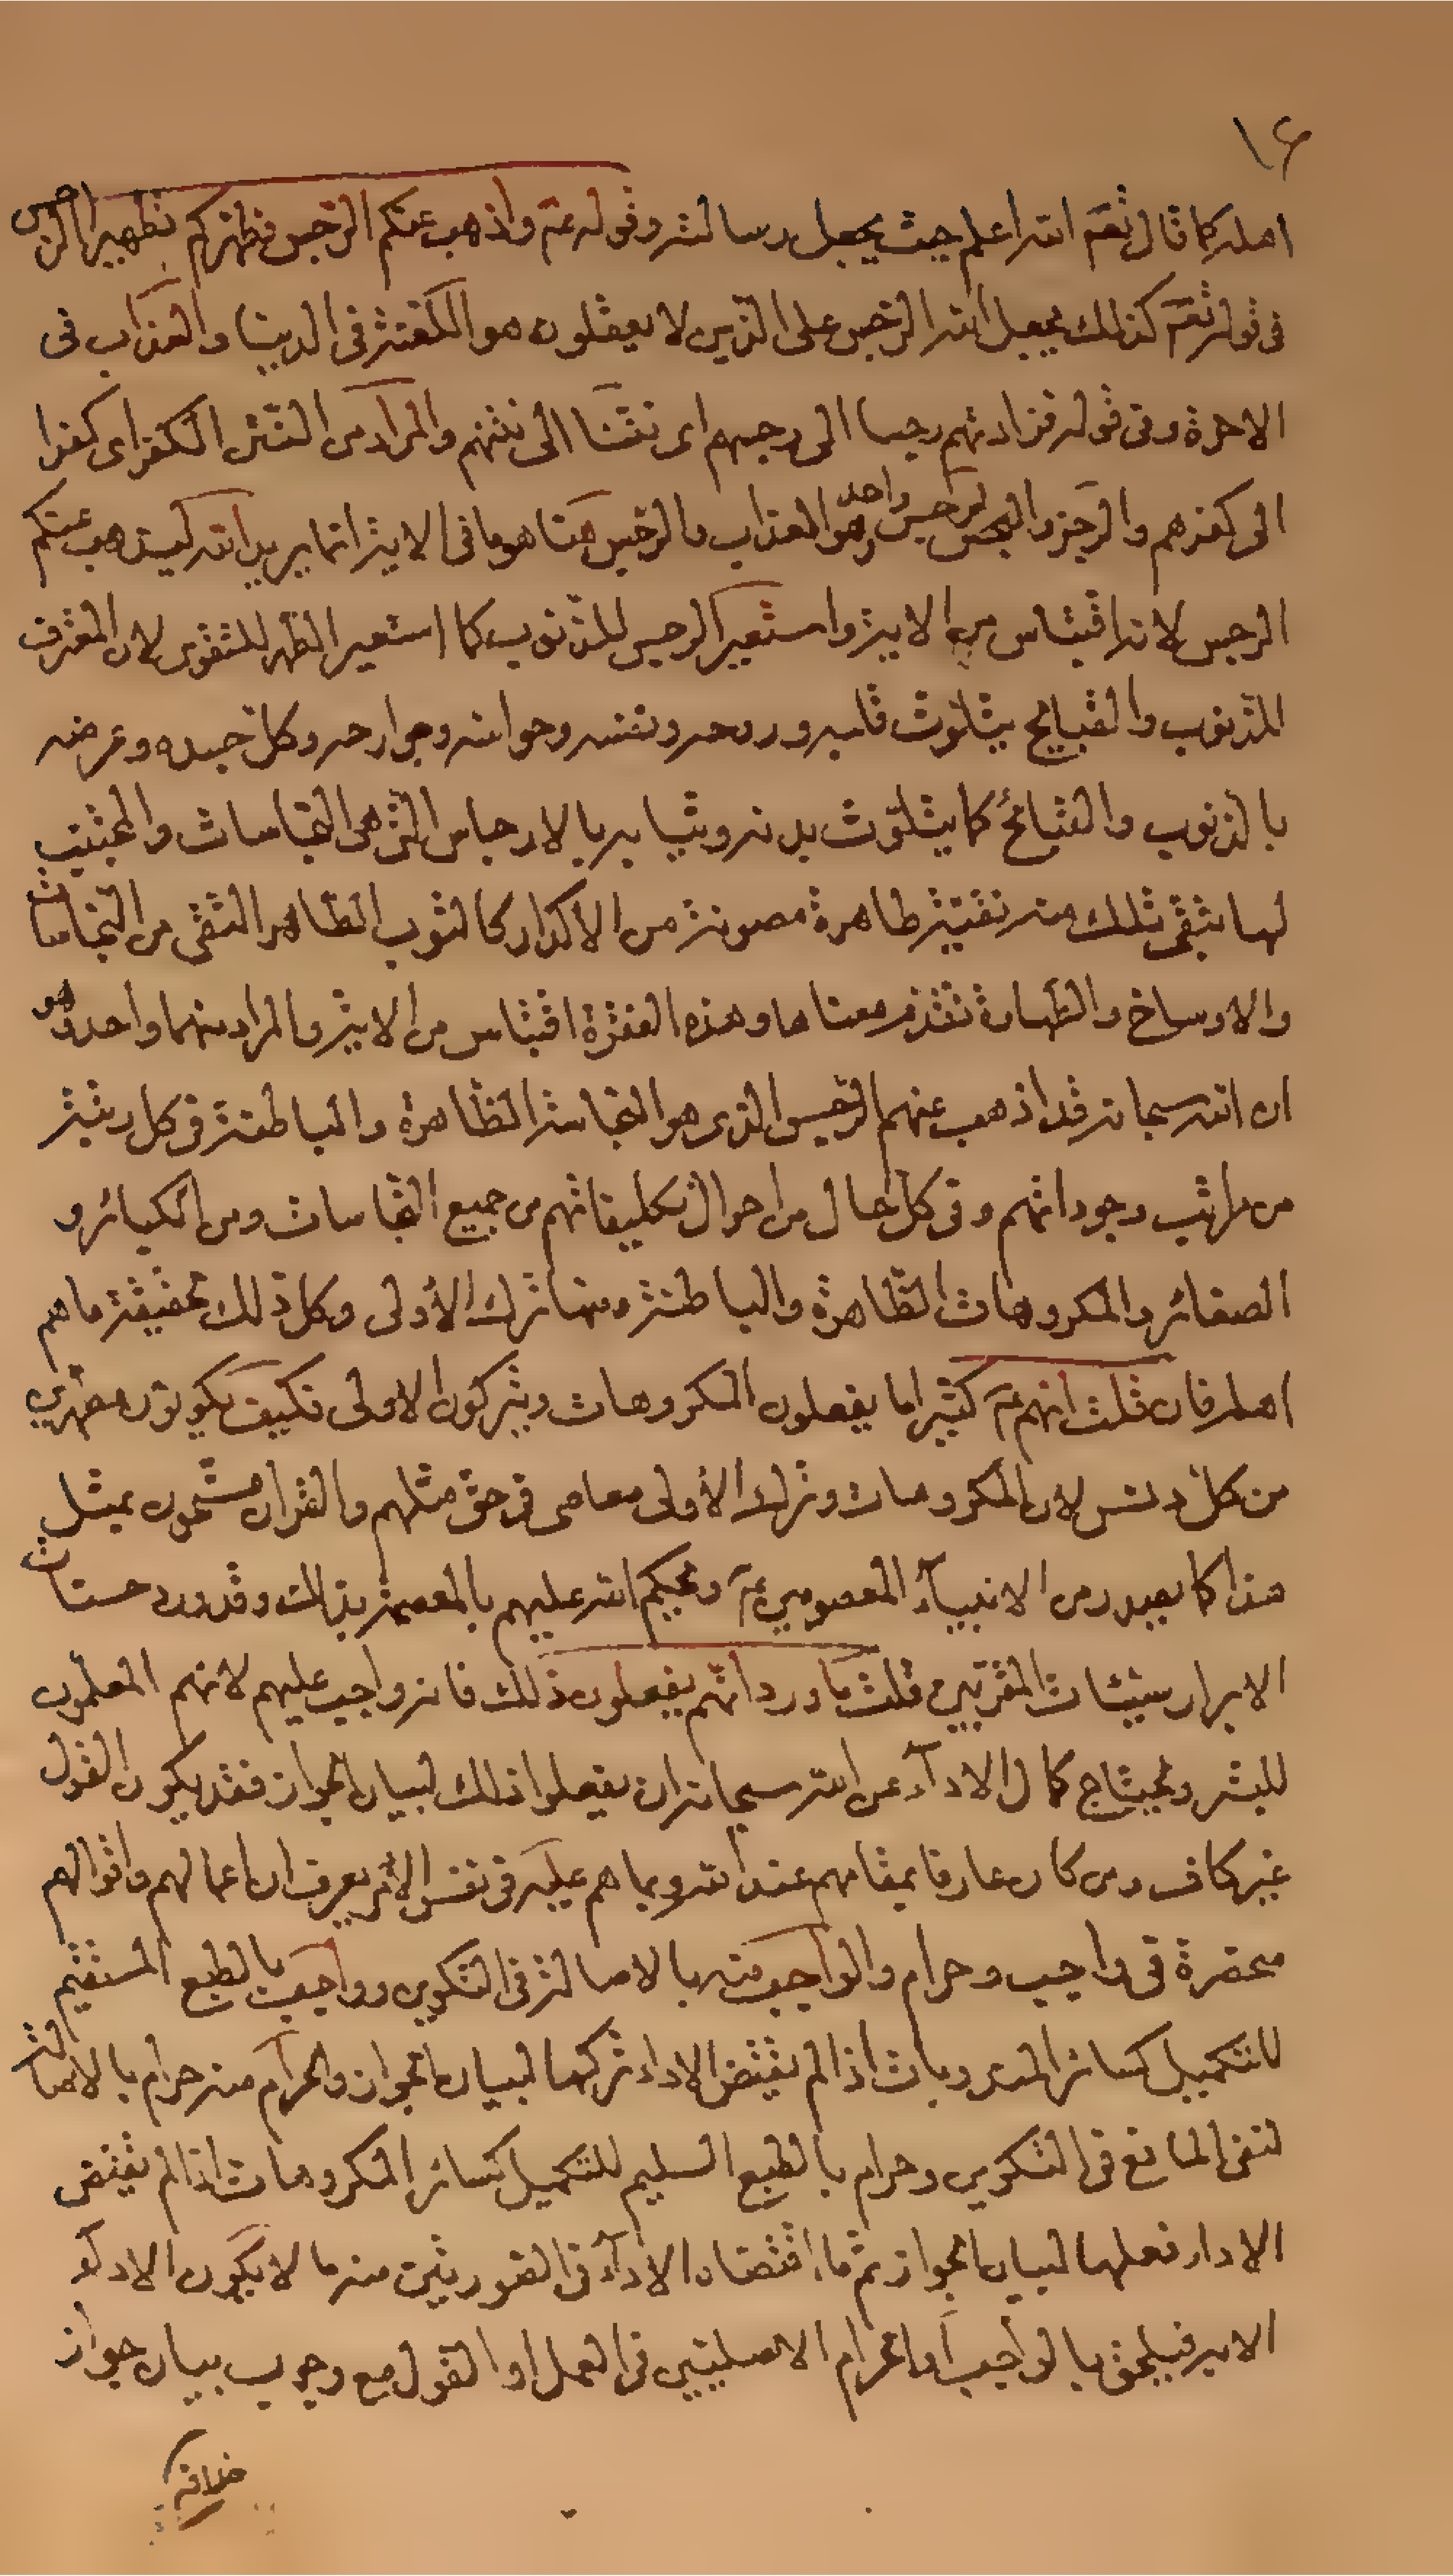 ١٤
اهله كما قال تعم الله اعلم حيث يجعل رسالته وقوله عم واذهب عنكم الرجس وطهركم تطهيرا الرجس
فى قوله تعم كذلك يجعل الله الرجس على الذين لا يعقلون هو اللعنة فى الدنيا والعذاب فى
الاخرة وفى قوله فزادتهم رجسا الى رجسهم اى نتنا الى نتنهم والمراد من النتن الكفر اى كفرا
الى كفرهم والرجز والرجس واحد وهو العذاب والرجس هنا هو ما فى الاية انما يريد الله ليذهب عنكم
الرجس لانه اقتباس من الاية واستعير الرجس للذنوب كما استعير الطهر للتقوى لان المقترف
للذنوب والقبايح يتلوث قلبه وروحه ونفسه وحواسه وجوارحه وكل جسده وعرضه
بالذنوب والقبائح كما يتلوث بدنه وثيابه بالارجاس التى هى النجاسات والمجتنب
لها تبقى تلك منه نقية طاهرة مصونة من الاكدار كالثوب الطاهر النقى من النجاسات
والاوساخ والطهارة تقدم معناها وهذه الفقرة اقتباس من الاية والمراد منهما واحد وهو
ان الله سبحانه قد اذهب عنهم الرجس الذى هو النجاسة الظاهرة والباطنة فى كل رتبة
من مراتب وجوداتهم وفى كل حال من احوال تكليفاتهم من جميع النجاسات ومن الكبائر و
الصغائر والمكروهات الظاهرة والباطنة ومنها ترك الأولى وكل ذلك بحقيقة ما هم
اهله فان قلت انهم عم كثيرا ما يفعلون المكروهات ويتركون الاولى فكيف يكونون مطهرين
من كل دنس لان المكروهات وترك الأولى معاصى فى حق مثلهم والقران مشحون بمثل
هذا كما يصدر من الانبيآء المعصومين عم ويحكم الله عليهم بالمعصية بذلك وقد ورد حسنات
الابرار سيئات المقربين قلت ما ورد انهم يفعلون ذلك فانه واجب عليهم لانهم المعلمون
للبشر ويحتاج كمال الادآء عن الله سبحانه ان يفعلوا ذلك لبيان الجواز فقد يكون القول
غير كاف ومن كان عارفا بمقامهم عند الله وبما هم عليه فى نفس الأمر يعرف ان اعمالهم واقوالهم
منحصرة فى واجب وحرام والواجب منه بالاصالة فى التكوين وواجب بالطبع المستقيم
للتكميل كسائر المندوبات اذا لم يقتض الاداء تركها لبيان الجواز والحرام منه حرام بالاصالة
لنفى المانع فى التكوين وحرام بالطبع السليم للتكميل كسائر المكروهات اذا لم يقتض
الاداء فعلها لبيان الجواز ثم ما اقتضاه الادآء فى الصورتين منه ما لا يكون الادآء
الا به فيلحق بالواجب او الحرام الاصليين فى العمل او القول مع وجوب بيان جواز
خلافه